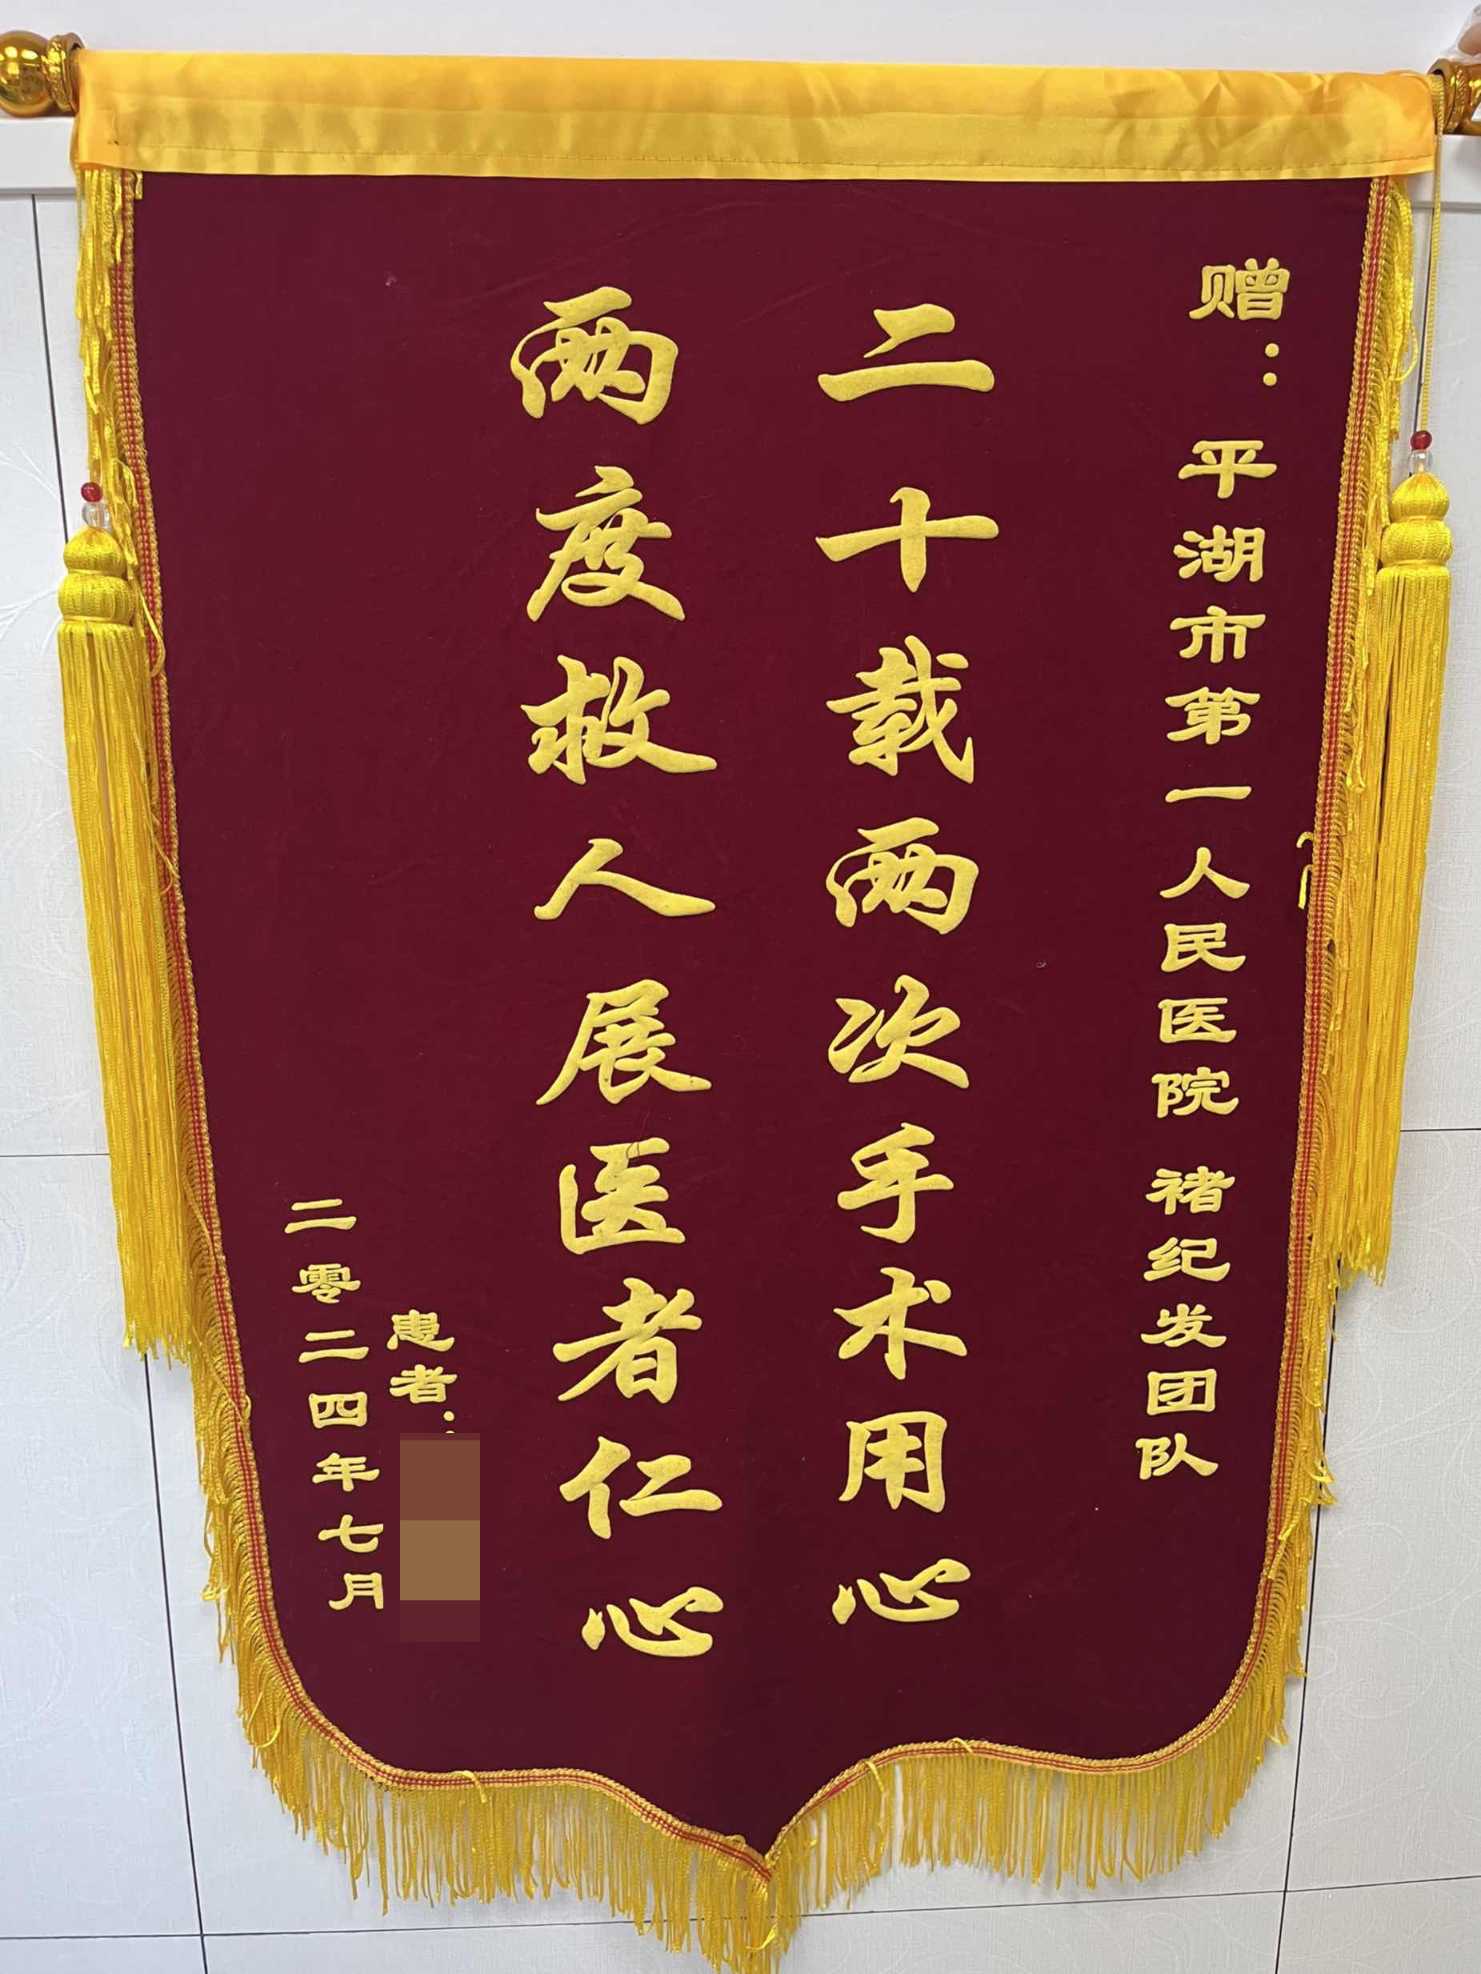 赠：平湖市第一人民医院 褚纪发团队
二十载两次手术用心
两度救人展医者仁心
患者：
二零二四年七月